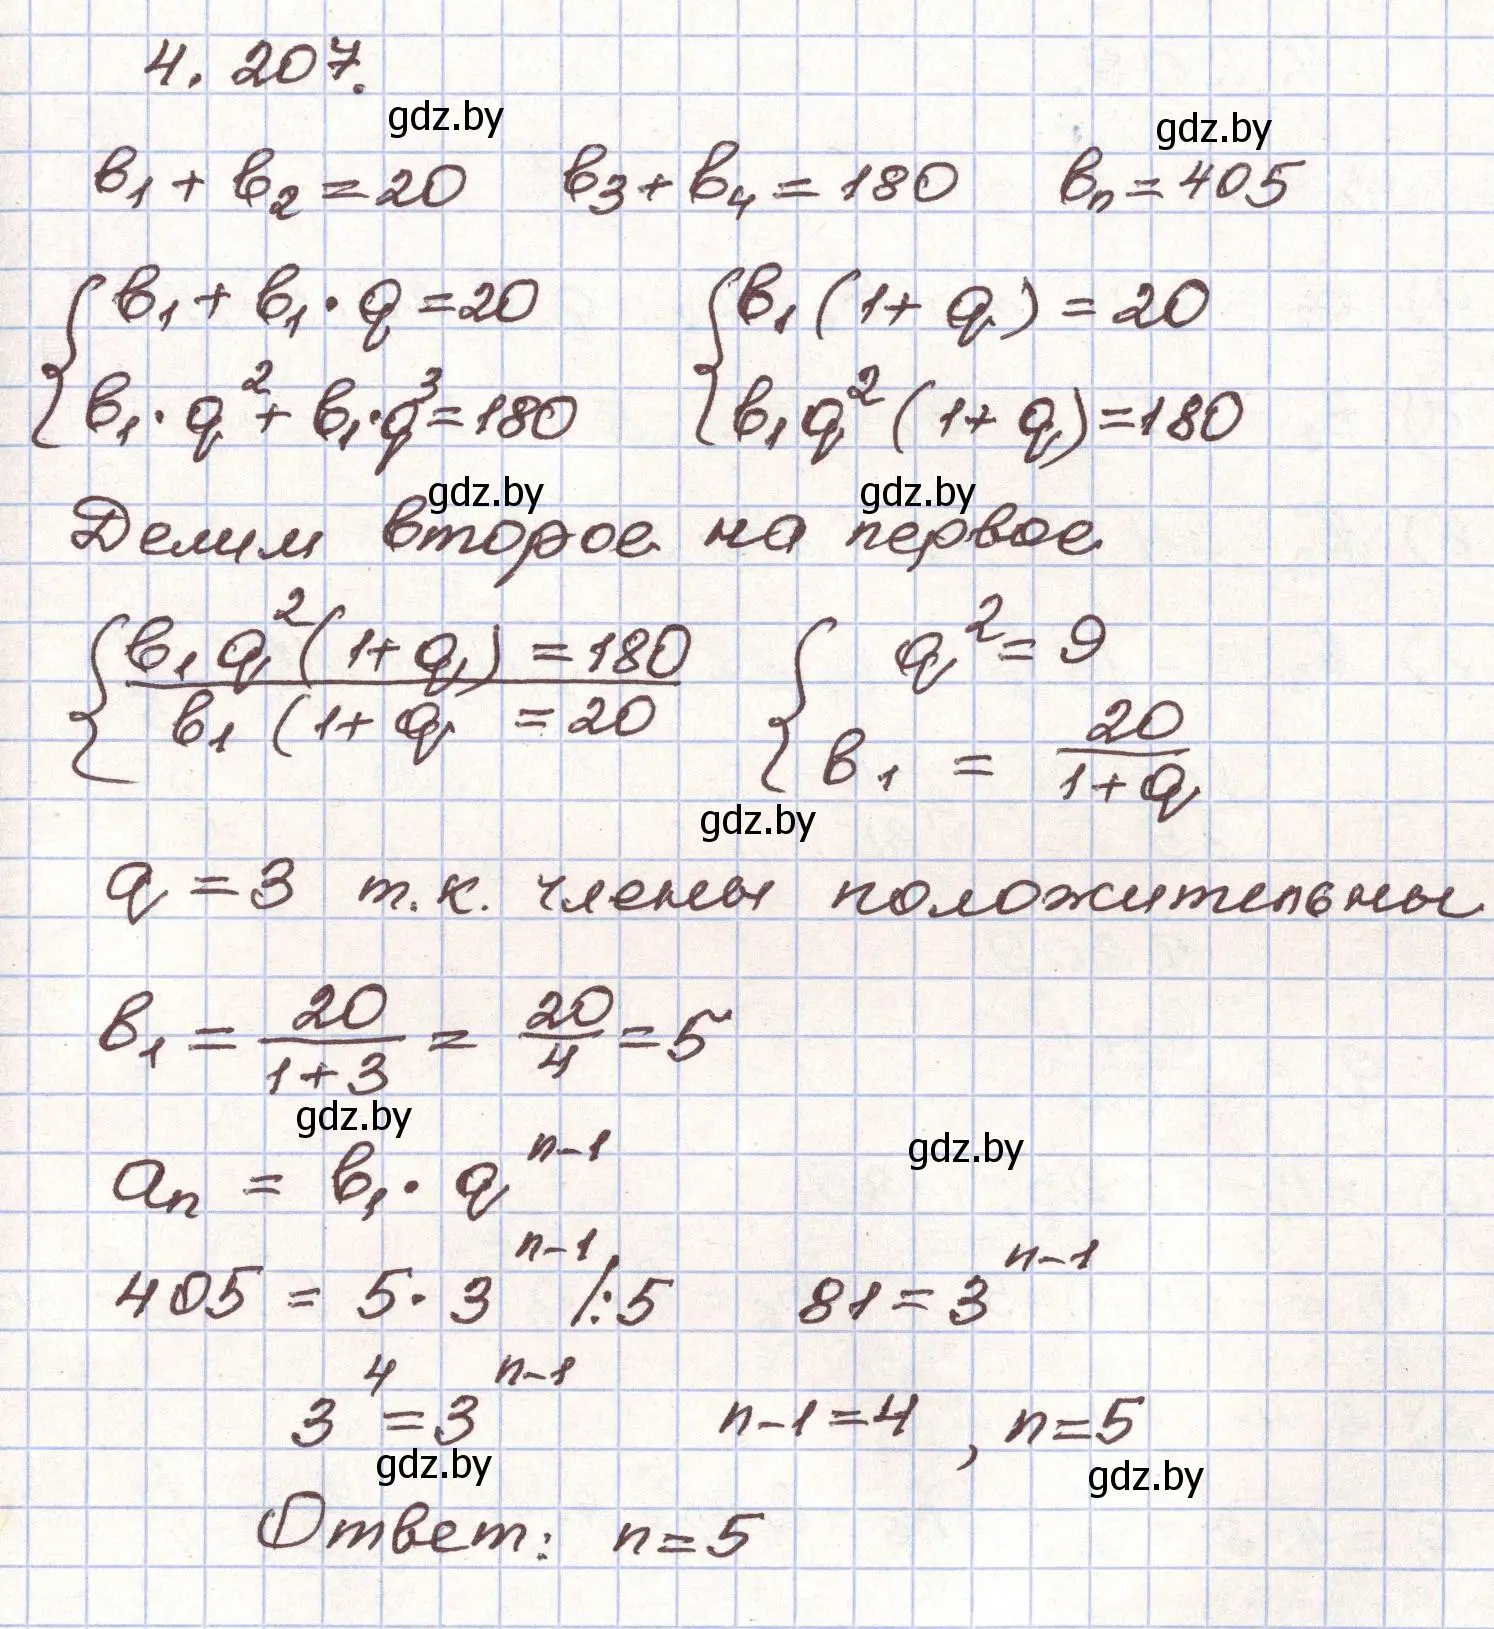 4.207.
gdz.by
gdz.by
в₁ + в₂ = 20 в₃ + в₄ = 180 вₙ = 405
{ в₁ + в₁ · q = 20 { в₁ (1 + q) = 20
в₁ · q² + в₁ · q³ = 180 в₁ q² (1 + q) = 180
gdz.by gdz.by
Делим второе на первое
{ в₁ q² (1 + q) = 180 { q² = 9
в₁ (1 + q = 20 в₁ = 20/(1 + q)
gdz.by
q = 3 т.к. члены положительны
в₁ = 20/(1 + 3) = 20/4 = 5
gdz.by gdz.by
aₙ = в₁ · qⁿ⁻¹
405 = 5 · 3ⁿ⁻¹ /:5 81 = 3ⁿ⁻¹
3⁴ = 3ⁿ⁻¹ n-1=4, n=5
gdz.by gdz.by
Ответ: n=5